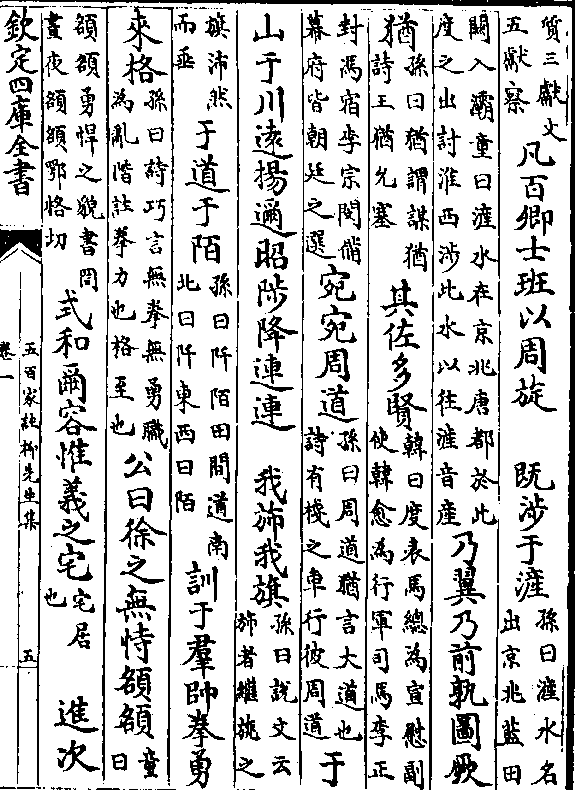 質三獻文
五獻察
凡百卿士班以周旋　既涉于滻
孫曰滻水名
出京兆藍田
關入灞童曰滻水在京兆唐都於此
度之出討淮西涉此水以往滻音産
乃翼乃前孰圖厥
猶
孫曰猶謂謀猶
詩王猶允塞
其佐多賢
韓曰度表馬總為宣慰副
使韓愈為行軍司馬李正
封馮宿李宗閔備
幕府皆朝廷之選
宛宛周道
孫曰周道猶言大道也
詩有棧之車行彼周道
于
山于川遠揚邇昭陟降連連　我斾我旗
孫曰說文云
斾者繼旐之
旗沛然
而垂
于道于陌
孫曰阡陌田間道南
北曰阡東西曰陌
訓于羣帥拳勇
來格
孫曰詩巧言無拳無勇職
為亂階註拳力也格至也
公曰徐之無恃頟頟
童
曰
頟頟勇悍之貌書罔
晝夜頟頟鄂恪切
式和爾容惟義之宅
宅居
也
進次
欽定四庫全書
卷一
五百家註柳先生集
五